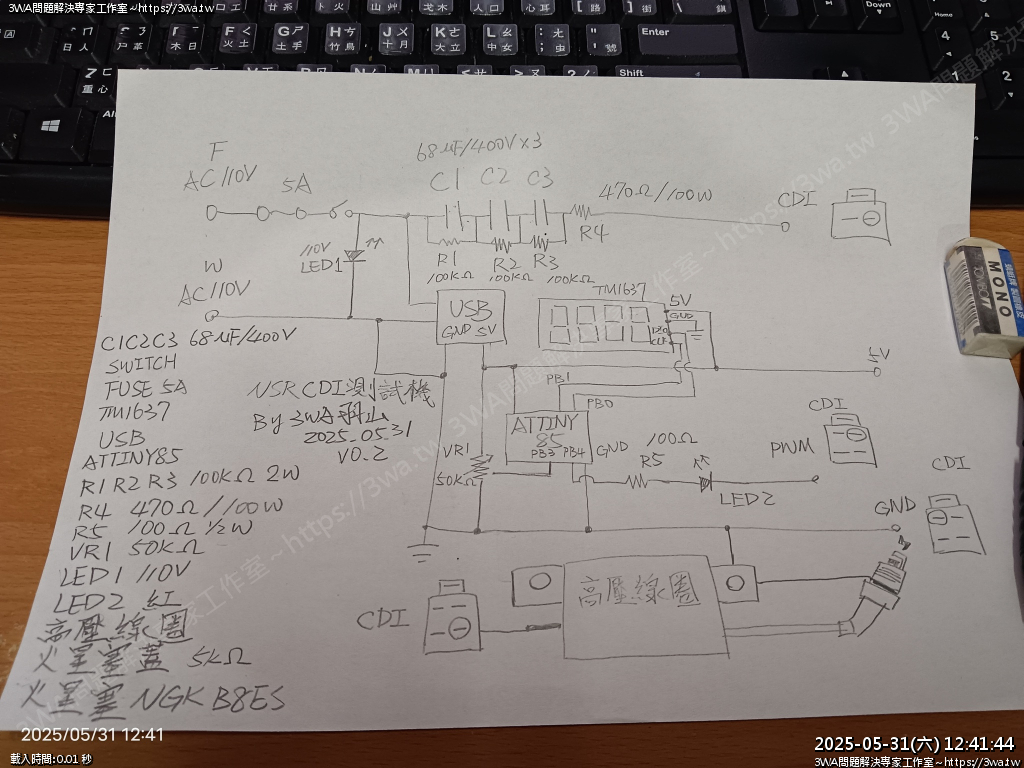 3WA問題解決專家工作室~https://3wa.tw
F
AC110V
5A
68μF/400V×3
C1 C2 C3
470Ω/100W
CDI
R4
110V
LED1
R1 R2 R3
100KΩ 100KΩ 100KΩ
W
AC110V
USB
GND 5V
TM1637
5V
GND
DIO
CLK
5V
C1C2C3 68μF/400V
SWITCH
FUSE 5A
TM1637
USB
ATTINY85
R1 R2 R3 100KΩ 2W
R4 470Ω/100W
R5 100Ω 1/2W
VR1 50KΩ
LED1 110V
LED2 紅
高壓線圈
火星塞蓋 5KΩ
火星塞 NGK B8ES
NSR CDI測試機
By 3WA羽山
2025.05.31
V0.2
PB1
PB0
ATTINY
85
PB3 PB4
GND
VR1
50KΩ
100Ω
R5
LED2
PWM
CDI
GND
CDI
CDI
高壓線圈
MONO
Enter
Shift
Home
Down
Alt
2025/05/31 12:41
載入時間:0.01 秒
2025-05-31(六) 12:41:44
3WA問題解決專家工作室~https://3wa.tw